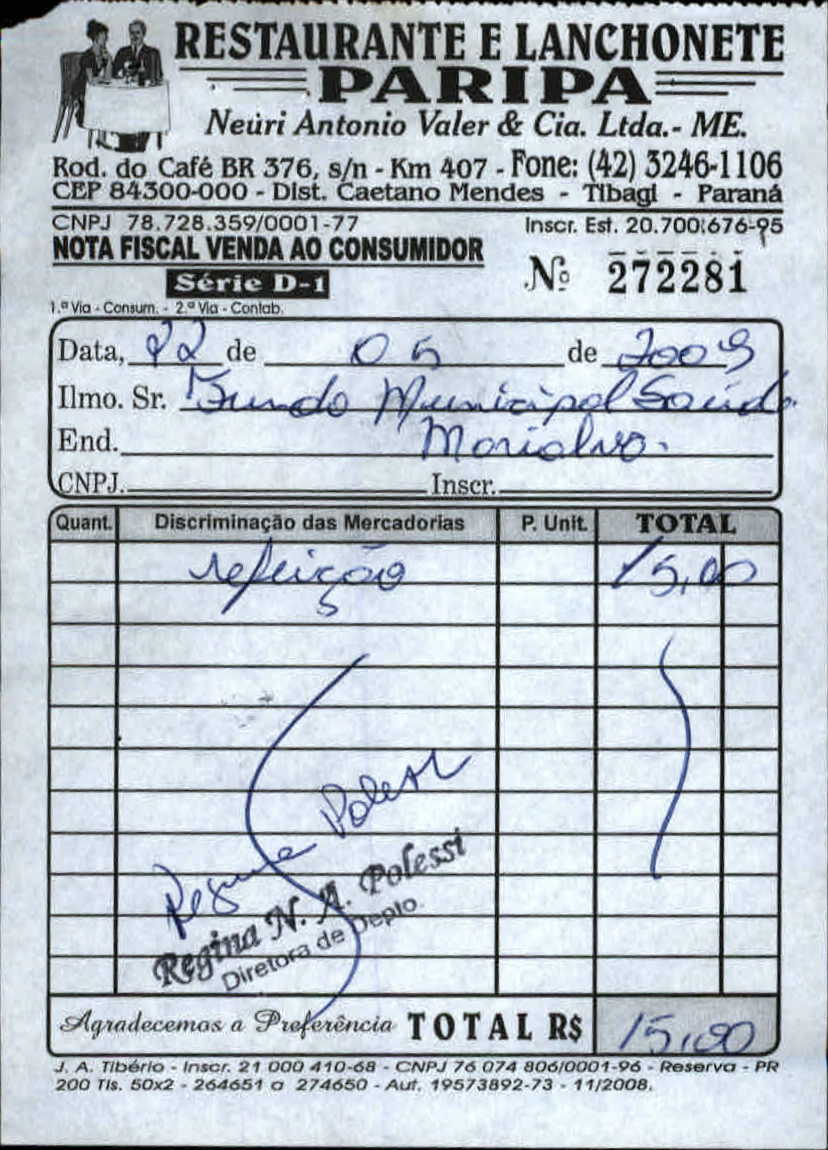 RESTAURANTE E LANCHONETE
PARIPA
Neúri Antonio Valer & Cia. Ltda.- ME.
Rod. do Café BR 376, s/n - Km 407 - Fone: (42) 3246-1106
CEP 84300-000 - Dist. Caetano Mendes - Tibagi - Paraná
CNPJ 78.728.359/0001-77 Inscr. Est. 20.700.676-95
NOTA FISCAL VENDA AO CONSUMIDOR
Série D-1 Nº 272281
1.ª Via - Consum. - 2.ª Via - Contab.
Data, 22 de 05 de 2009
Ilmo. Sr. Fundo Municipal Saúde
End. Marialva.
CNPJ. Inscr.
Quant. Discriminação das Mercadorias P. Unit. TOTAL
refeição 15,00
Regina Polessi
Regina N. A. Polessi
Diretora de Depto.
Agradecemos a Preferência TOTAL R$ 15,00
J. A. Tibério - Inscr. 21 000 410-68 - CNPJ 76 074 806/0001-96 - Reserva - PR
200 Tls. 50x2 - 264651 a 274650 - Aut. 19573892-73 - 11/2008.